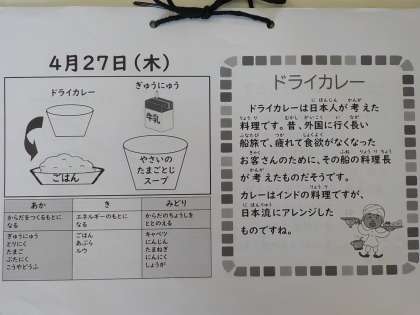 4月27日(木)
ドライカレー
ぎゅうにゅう
牛乳
ごはん
やさいの
たまごとじ
スープ
あか き みどり
からだをつくるもとに
なる
エネルギーのもとに
なる
からだのちょうしを
ととのえる
ぎゅうにゅう
とりにく
たまご
ぶたにく
こうやどうふ
ごはん
あぶら
ルウ
キャベツ
にんじん
たまねぎ
にんにく
しょうが
ドライカレー
ドライカレーは日本人が考えた
料理です。昔、外国に行く長い
船旅で、疲れて食欲がなくなった
お客さんのために、その船の料理長
が考えたものだそうです。
カレーはインドの料理ですが、
日本流にアレンジした
ものですね。